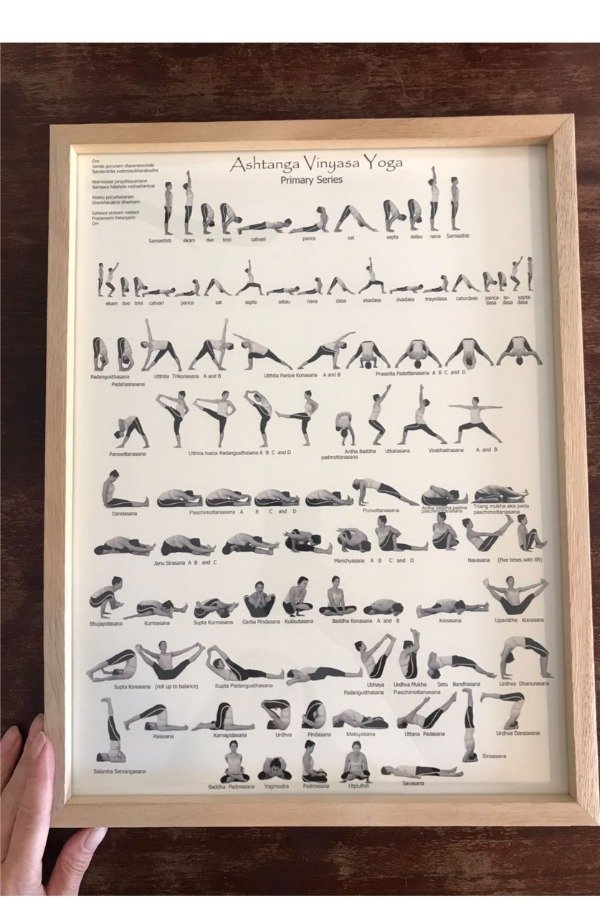 Ashtanga Vinyasa Yoga
Primary Series
Om
Vande gurunam charanaravinde
Sandarshita svatmasukhavabodhe
Samsara halahala mohashantyai
Abahu purushakaram
Om
Samasthiti ekam dve trini catvari panca sat sapta astau nava Samasthiti
ekam dve trini catvari panca sat sapta astau nava dasa ekadasa dvadasa trayodasa caturdasa panca-dasa so-dasa sapta-dasa
Padangusthasana Utthita Trikonasana A and B Utthita Parsva Konasana A and B Prasarita Padottanasana A B C and D
Padahastasana
Parsvottanasana Utthita hasta Padangusthasana A B C and D Ardha Baddha padmottanasana Utkatasana Virabhadrasana A and B
Dandasana Paschimottanasana A B C and D Purvottanasana Ardha baddha padma paschimottanasana Triang mukha eka pada paschimottanasana
Janu Sirasana A B and C Marichyasana A B C and D Navasana (five times with lift)
Bhujapidasana Kurmasana Supta Kurmasana Garba Pindasana Kukkutasana Baddha Konasana A and B Konasana Upavistha Konasana
Supta Konasana (roll up to balance) Supta Padangusthasana Ubhaya Padangusthasana Urdhva Mukha Paschimottanasana Setu Bandhasana Urdhva Dhanurasana
Salamba Sarvangasana Halasana Karnapidasana Urdhva Pindasana Matsyasana Uttana Padasana Sirsasana Urdhva Dandasana
Baddha Padmasana Yogimudra Padmasana Utpluthih Savasana